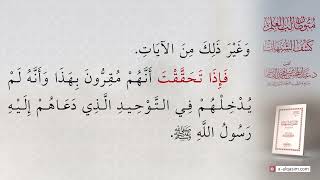 متون طالب العلم
كشف الشبهات
وَغَيْرَ ذَلِكَ مِنَ الآيَاتِ.
فَإِذَا تَحَقَّقْتَ أَنَّهُمْ مُقِرُّونَ بِهَذَا وَأَنَّهُ لَمْ
يُدْخِلْهُمْ فِي التَّوْحِيدِ الَّذِي دَعَاهُمْ إِلَيْهِ
رَسُولُ اللَّهِ ﷺ.
a-alqasim.com